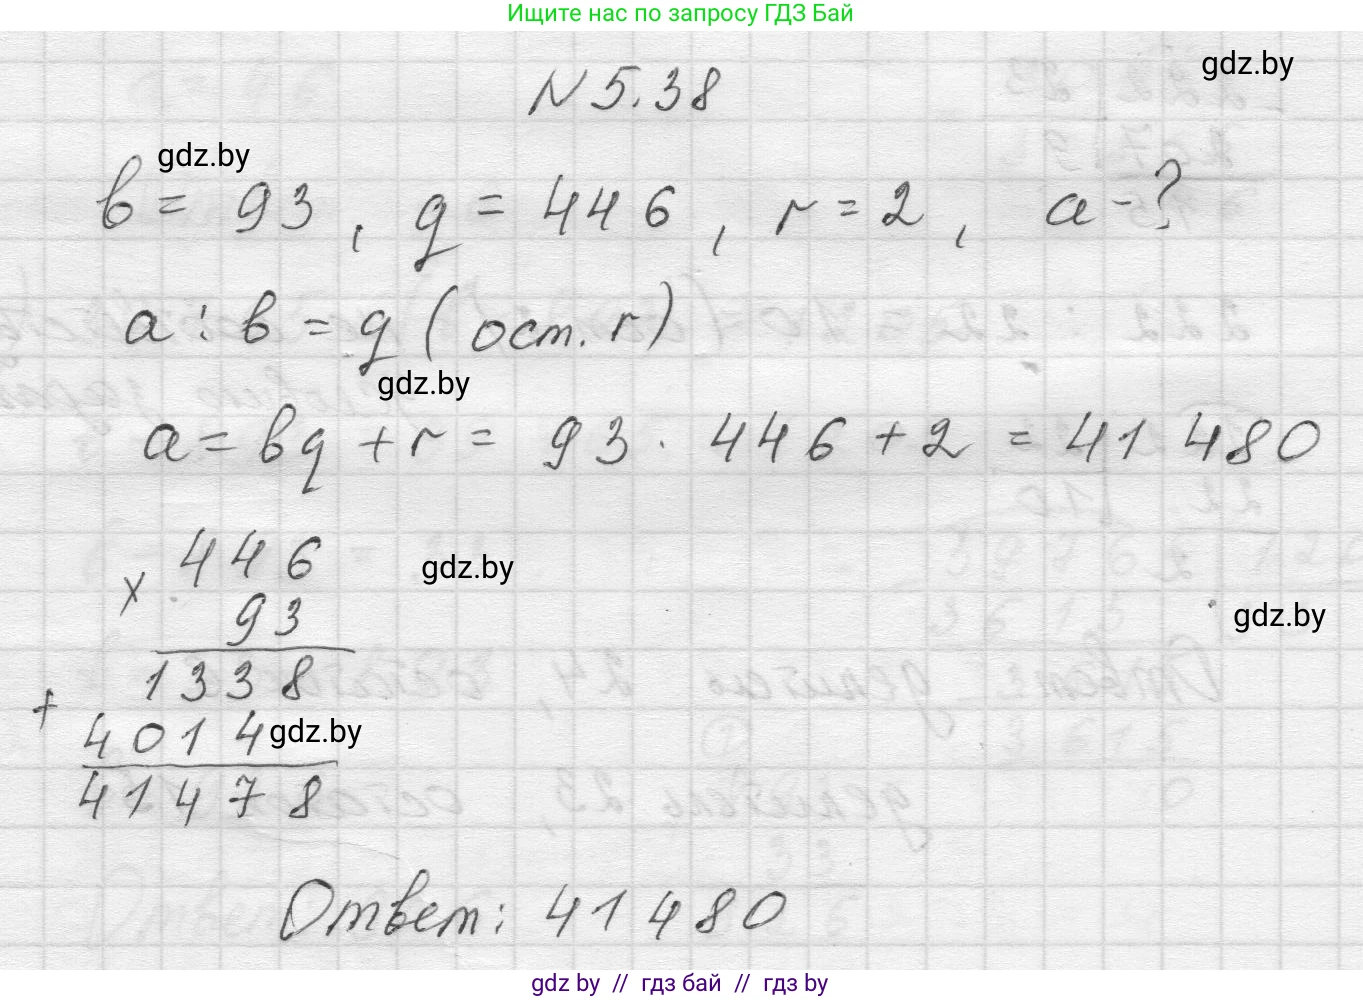 Ищите нас по запросу ГДЗ Бай
gdz.by
N 5.38
gdz.by
b = 93, q = 446, r = 2, a - ?
a : b = q (ост. r)
gdz.by
a = bq + r = 93 · 446 + 2 = 41 480
446
gdz.by
× 93
gdz.by
1338
+ 4014
gdz.by
41478
Ответ: 41 480
gdz.by // гдз бай // гдз by